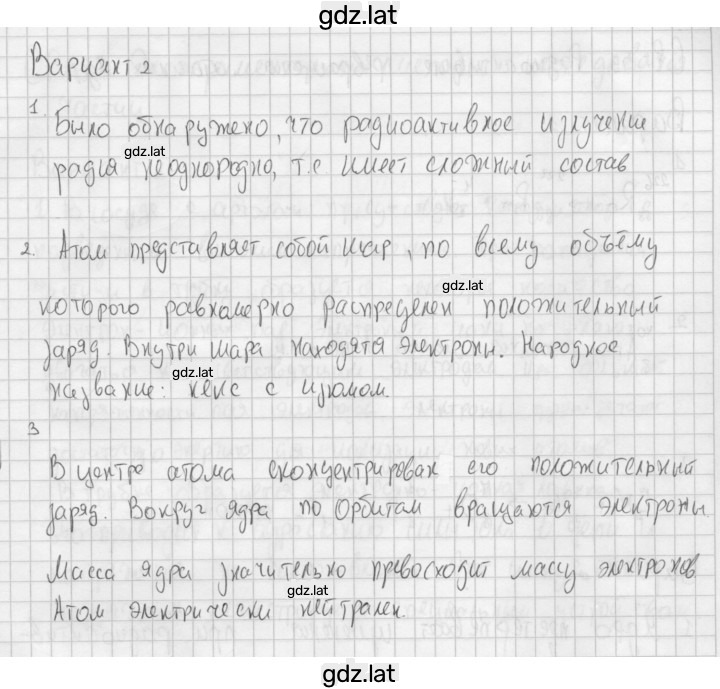 gdz.lat
Вариант 2
1. Было обнаружено, что радиоактивное излучение
gdz.lat
радия неоднородно, т.е имеет сложный состав
2. Атом представляет собой шар, по всему объёму
gdz.lat
которого равномерно распределен положительный
заряд. Внутри шара находятся электроны. Народное
gdz.lat
название: кекс с изюмом.
3
В центре атома сконцентрирован его положительный
заряд. Вокруг ядра по орбитам вращаются электроны.
Масса ядра значительно превосходит массу электронов
gdz.lat
Атом электрически нейтрален.
gdz.lat